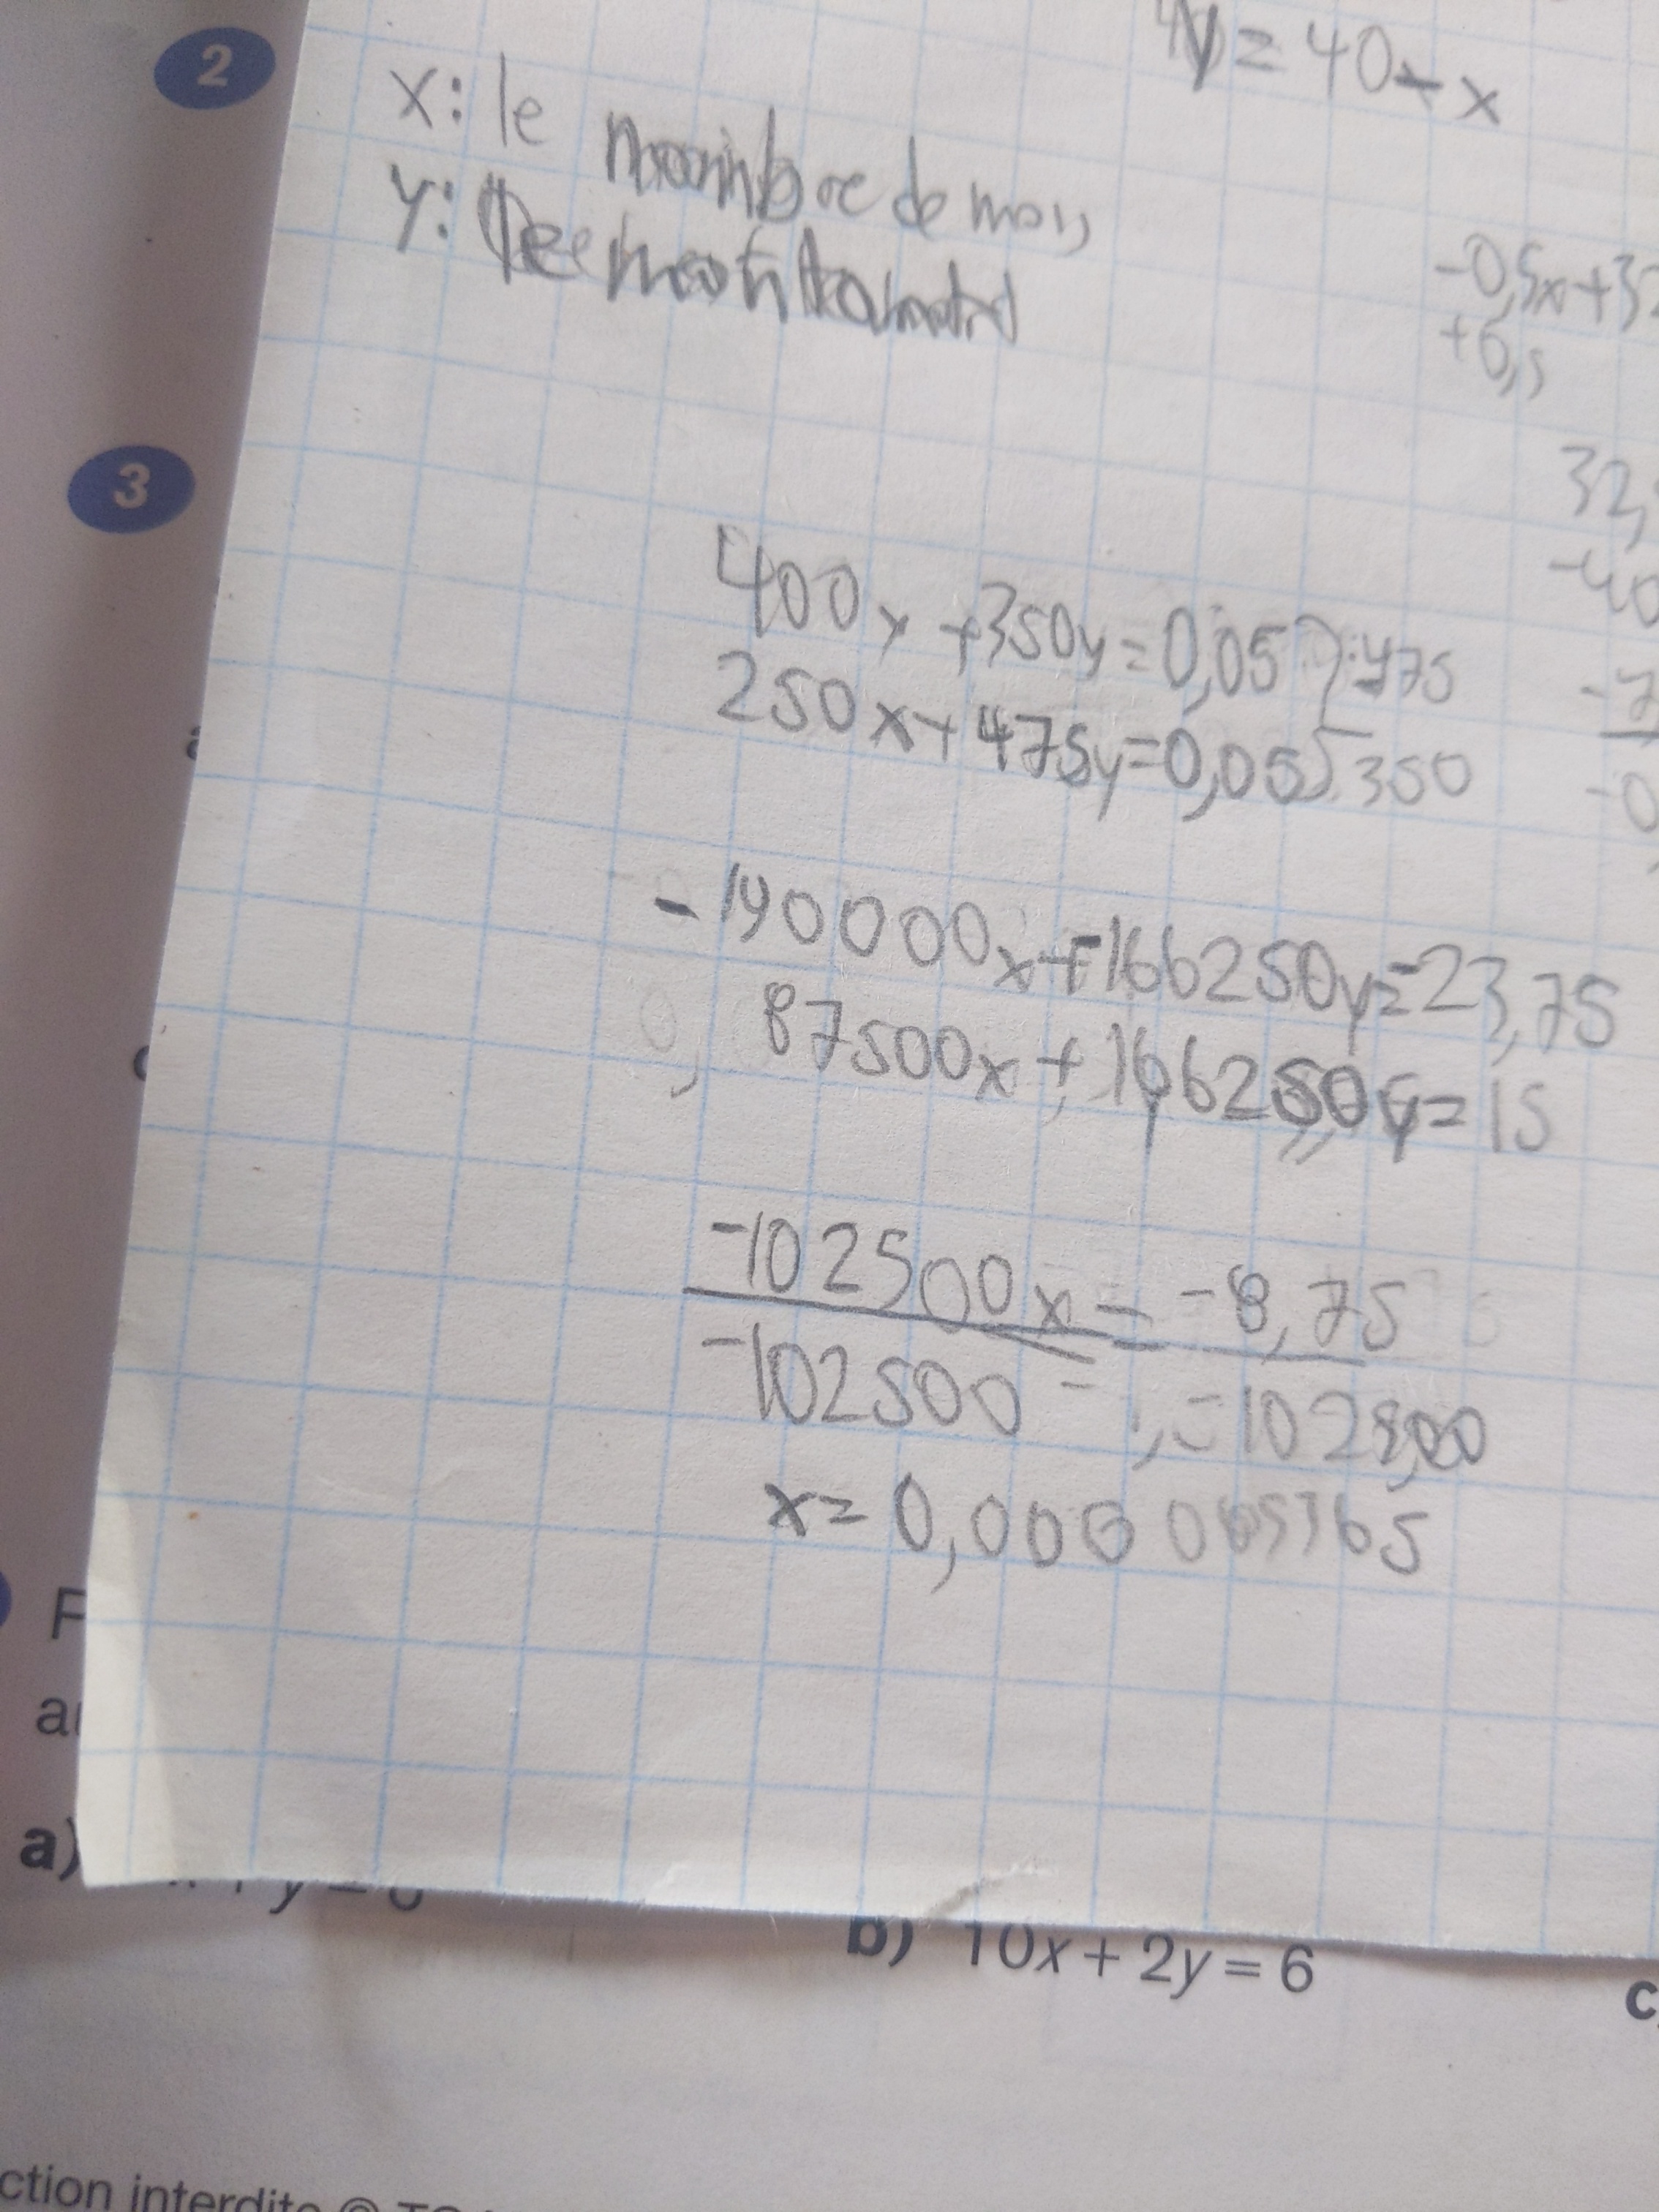 2
y = 40 - x
x: le nombre de mois
y: le
-0,5x + 32
+0,5
3
32,
-40
400x + 350y = 0,05 ) · -475
250x + 475y = 0,05 ) · 350
-7
-0
-190000x + -166250y = -23,75
87500x + 166250y = 15
-102500x = -8,75
-102500 = -102500
x = 0,000 085365
F
a)
x + y = 6
b) 10x + 2y = 6
c
ction interdite ©